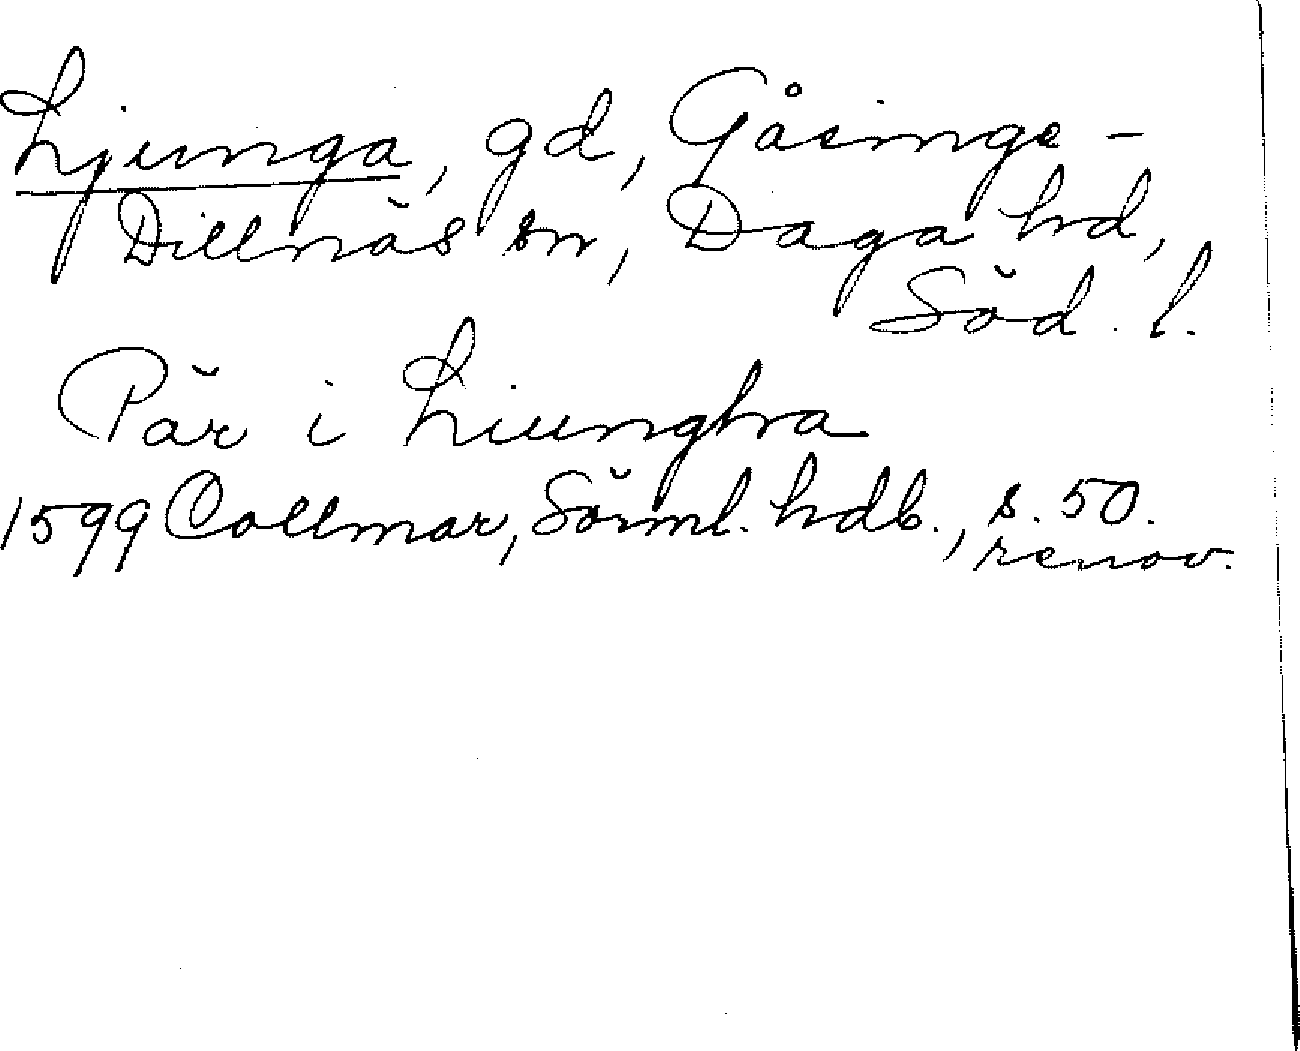 Ljunga, gd, Gåsinge-
Dillnäs sn, Daga hd,
Söd. l.
Pär i Liungha
1599 Collmar, Sörml. hdb., s. 50.
renov.